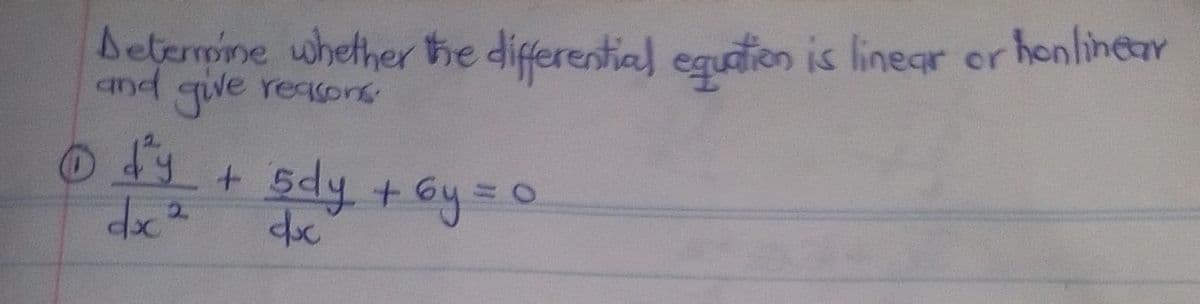 Determine whether the differential equation is linear or nonlinear
and give reasons.
① d²y/dx² + 5dy/dx + 6y = 0